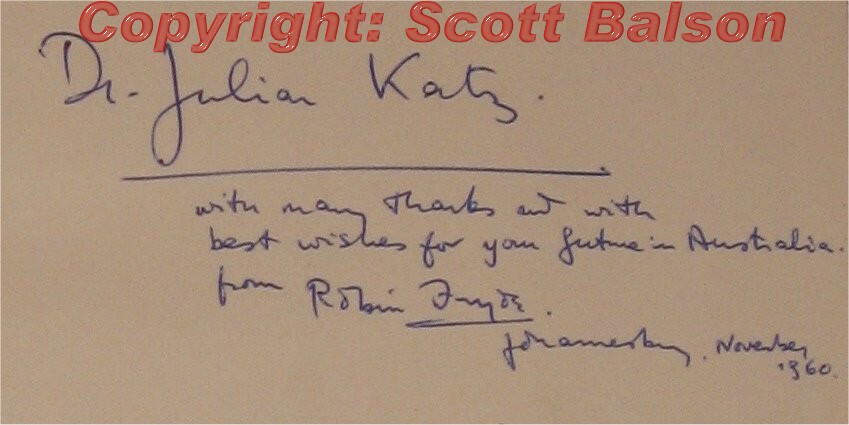 Copyright: Scott Balson
Dr. Julian Katz.
with many thanks and with
best wishes for your future in Australia.
from Robin Fryde.
Johannesburg, November
1960.